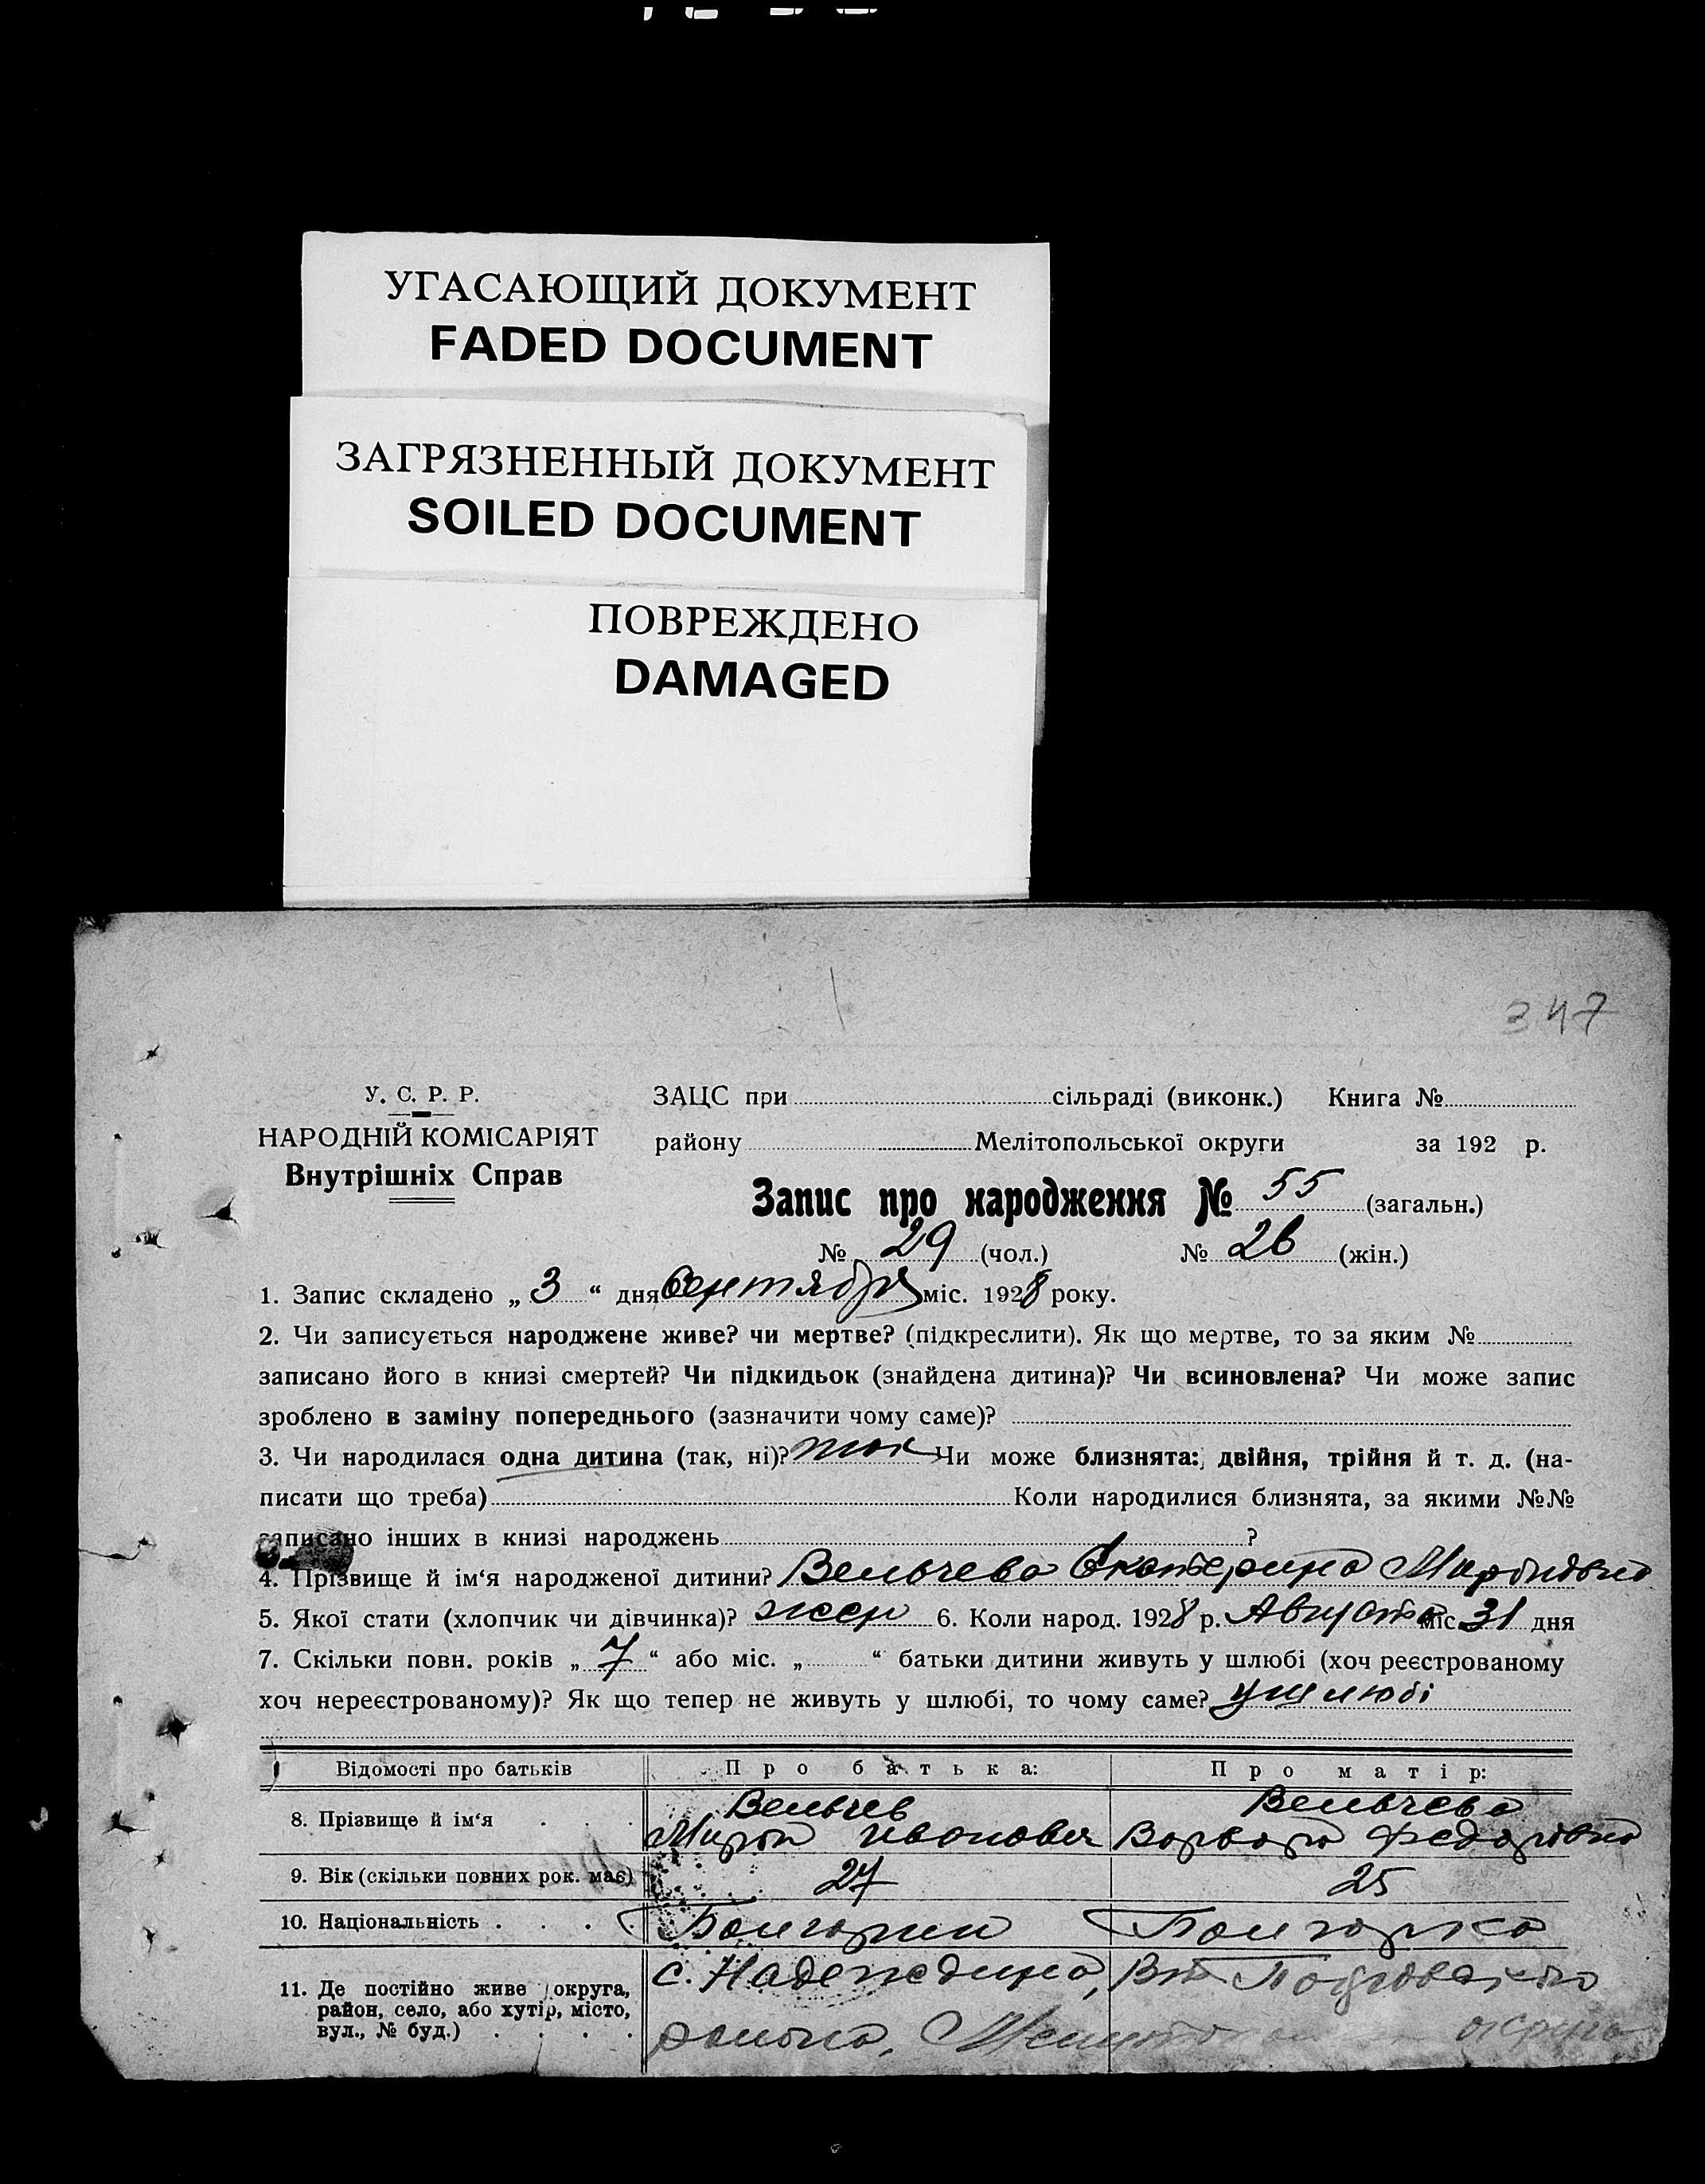 УГАСАЮЩИЙ ДОКУМЕНТ
FADED DOCUMENT
ЗАГРЯЗНЕННЫЙ ДОКУМЕНТ
SOILED DOCUMENT
ПОВРЕЖДЕНО
DAMAGED
347
У. С. Р. Р.
НАРОДНІЙ КОМІСАРІЯТ
Внутрішніх Справ
ЗАЦС при сільраді (виконк.) Книга №
району Мелітопольської округи за 192 р.
Запис про народження № 55 (загальн.)
№ 29 (чол.) № 26 (жін.)
1. Запис складено „ 3 “ дня Сентября міс. 1928 року.
2. Чи записується народжене живе? чи мертве? (підкреслити). Як що мертве, то за яким №
записано його в книзі смертей? Чи підкидьок (знайдена дитина)? Чи всиновлена? Чи може запис
зроблено в заміну попереднього (зазначити чому саме)?
3. Чи народилася одна дитина (так, ні)? так Чи може близнята: двійня, трійня й т. д. (на-
писати що треба) Коли народилися близнята, за якими №№
записано інших в книзі народжень ?
4. Прізвище й ім‘я народженої дитини? Вельчева Екатерина Мироновна
5. Якої стати (хлопчик чи дівчинка)? жен 6. Коли народ. 1928 р. Августа міс. 31 дня
7. Скільки повн. років „ 7 “ або міс. „ “ батьки дитини живуть у шлюбі (хоч реєстрованому
хоч нереєстрованому)? Як що тепер не живуть у шлюбі, то чому саме? у шлюбі
Відомості про батьків Про батька: Про матір:
8. Прізвище й ім‘я . . . Вельчев Мирон Иванович Вельчева Варвара Федоровна
9. Вік (скільки повних рок. має) 27 25
10. Національність . . . . Болгарин Болгарка
11. Де постійно живе (округа,
район, село, або хутір, місто,
вул., № буд.) . . . .
с. Надеждина,
района, округа